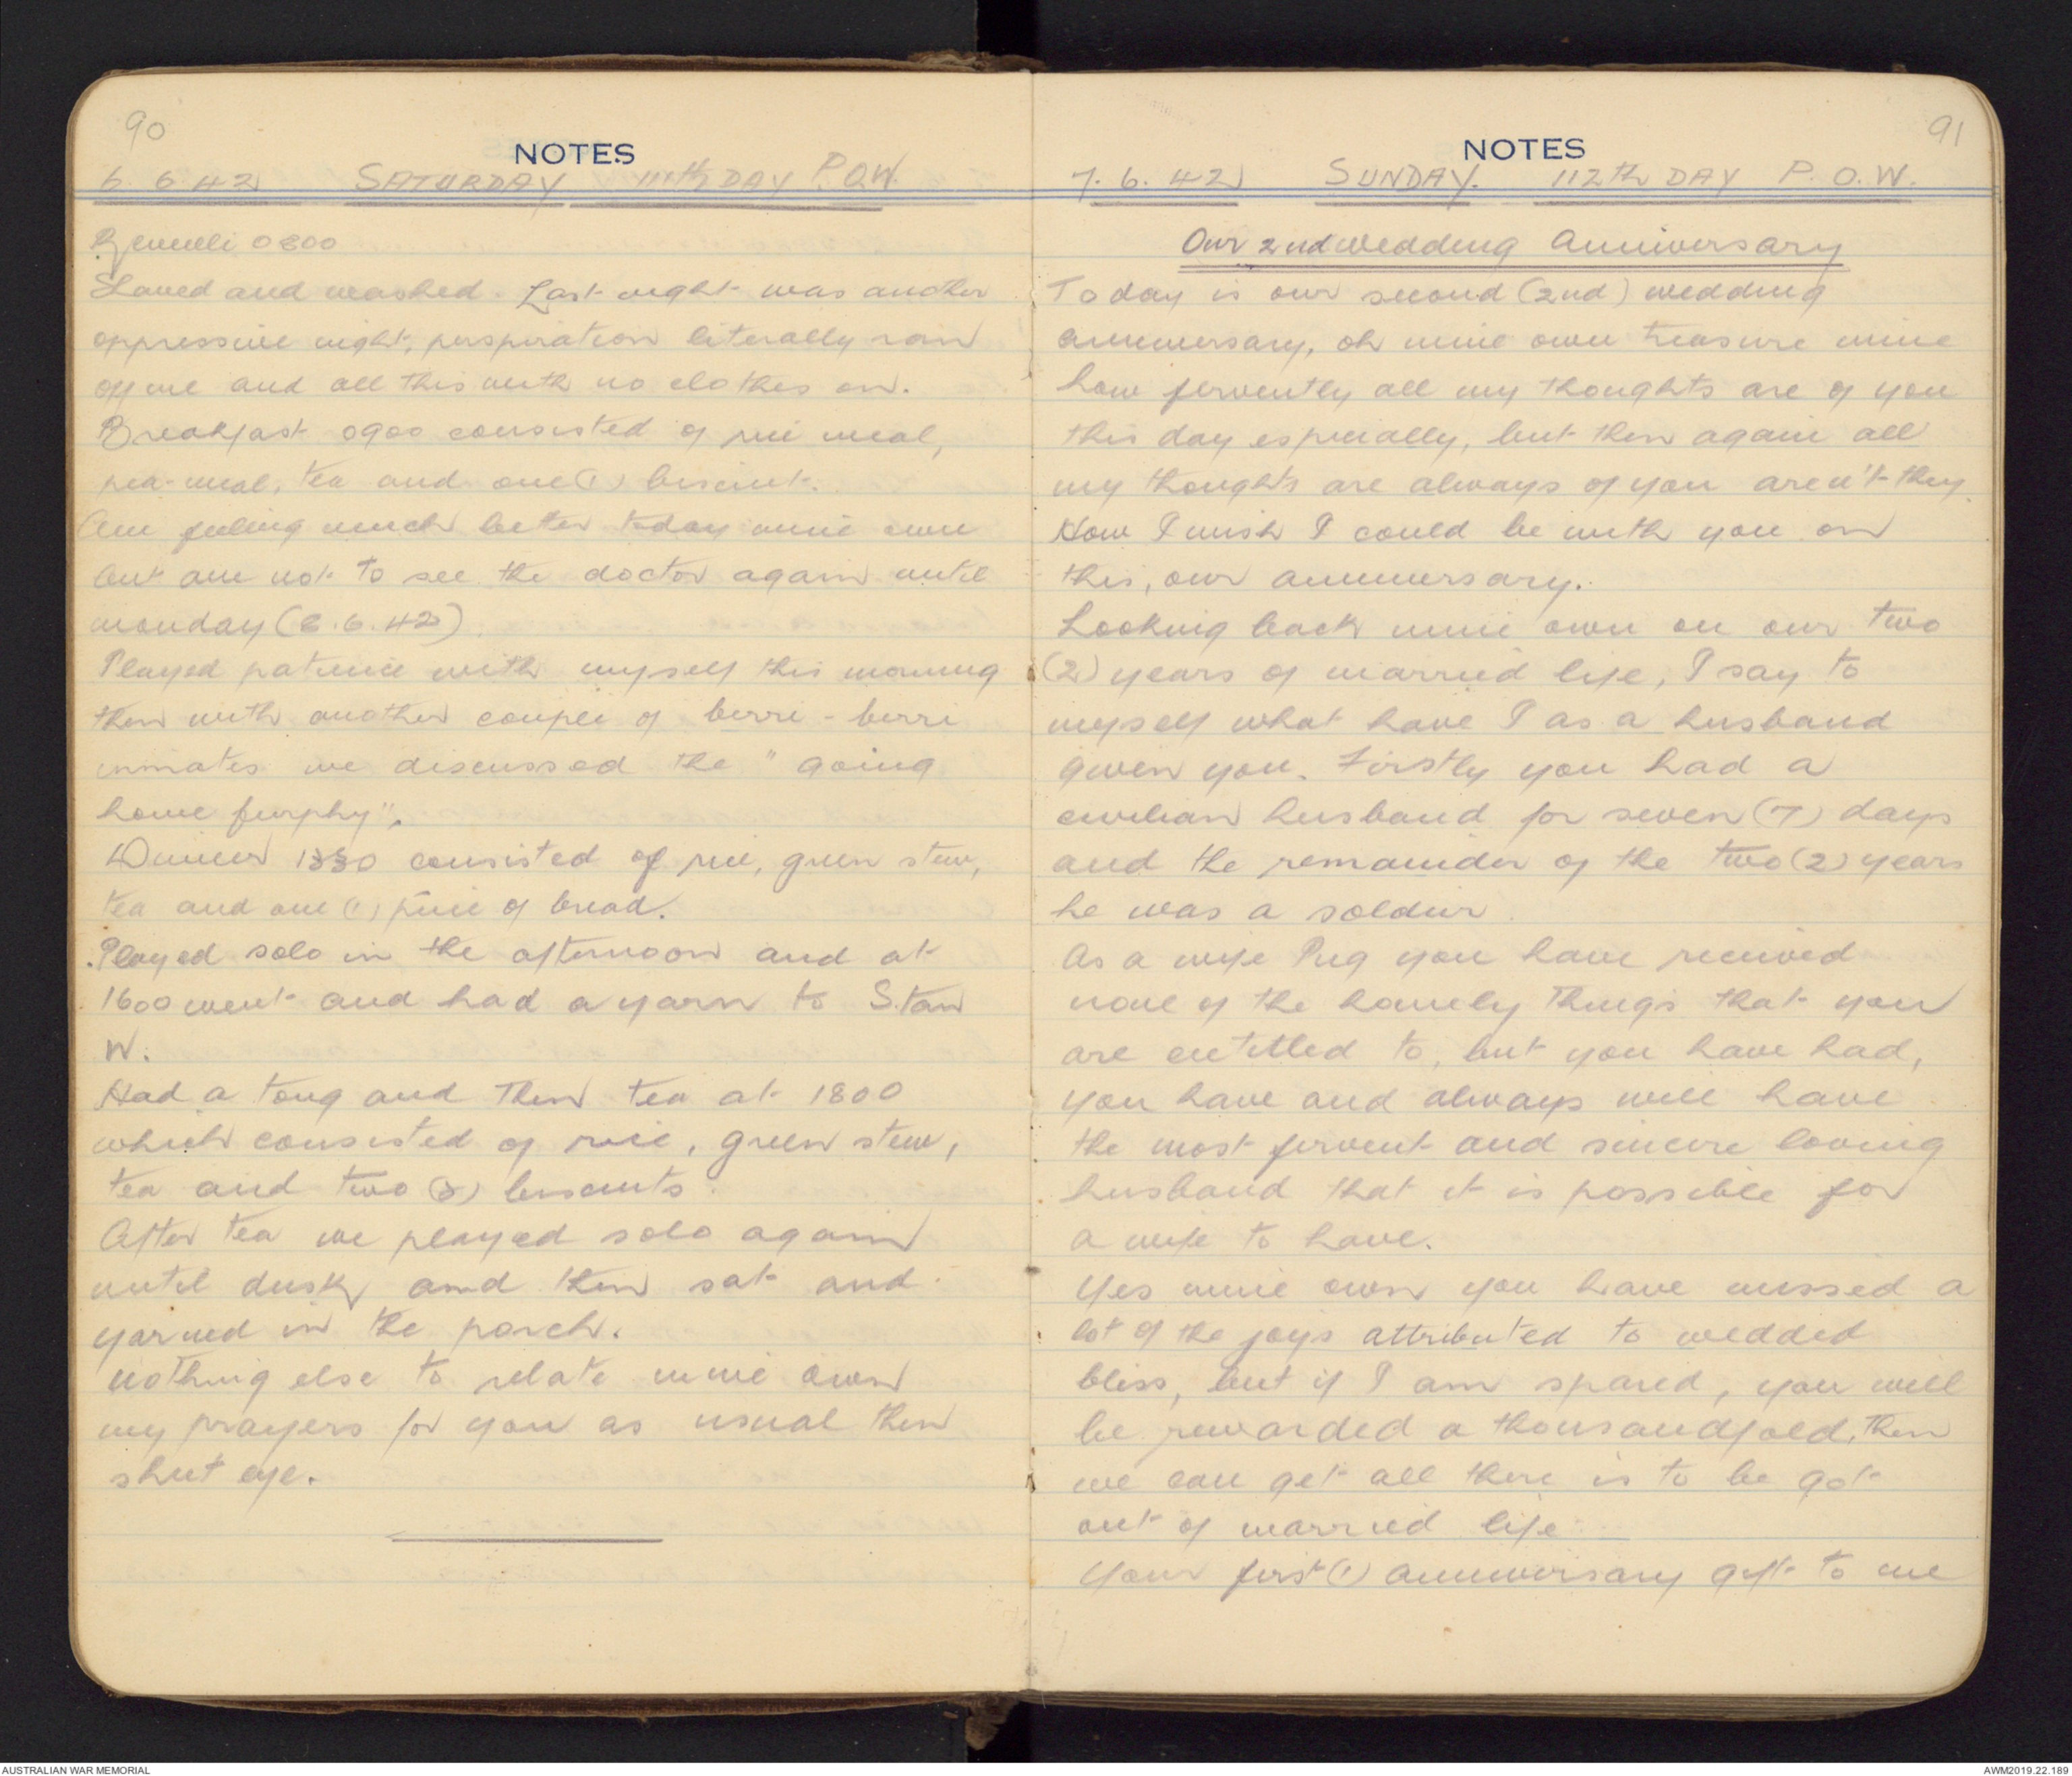 90
NOTES
6. 6. 42 SATURDAY 111th DAY P.O.W.
Reveille 0800
Shaved and washed. Last night was another
oppressive night, perspiration literally ran
off me and all this with no clothes on.
Breakfast 0900 consisted of rice meal,
pea-meal, tea and one (1) biscuit.
Am feeling much better today mine own
but am not to see the doctor again until
monday (8.6.42).
Played patience with myself this morning
then with another couple of berri-berri
inmates we discussed the "going
home furphy".
Dinner 1330 consisted of rice, green stew,
tea and one (1) piece of bread.
Played solo in the afternoon and at
1600 went and had a yarn to Stan
W.
Had a tong and then tea at 1800
which consisted of rice, green stew,
tea and two (2) biscuits.
After tea we played solo again
until dusk and then sat and
yarned in the porch.
nothing else to relate mine own
my prayers for you as usual then
shut eye.
91
NOTES
7. 6. 42 SUNDAY. 112th DAY P. O. W.
Our 2nd wedding Anniversary
Today is our second (2nd) wedding
anniversary, oh mine own treasure mine
how fervently all my thoughts are of you
this day especially, but then again all
my thoughts are always of you aren't they.
How I wish I could be with you on
this, our anniversary.
Looking back mine own on our two
(2) years of married life, I say to
myself what have I as a husband
given you. Firstly you had a
civilian husband for seven (7) days
and the remainder of the two (2) years
he was a soldier.
As a wife Peg you have received
none of the homely things that you
are entitled to, but you have had,
you have and always will have
the most fervent and sincere loving
husband that it is possible for
a wife to have.
Yes mine own you have missed a
lot of the joys attributed to wedded
bliss, but if I am spared, you will
be rewarded a thousandfold, then
we can get all there is to be got
out of married life.
Your first (1) anniversary gift to me
AUSTRALIAN WAR MEMORIAL
AWM2019.22.189